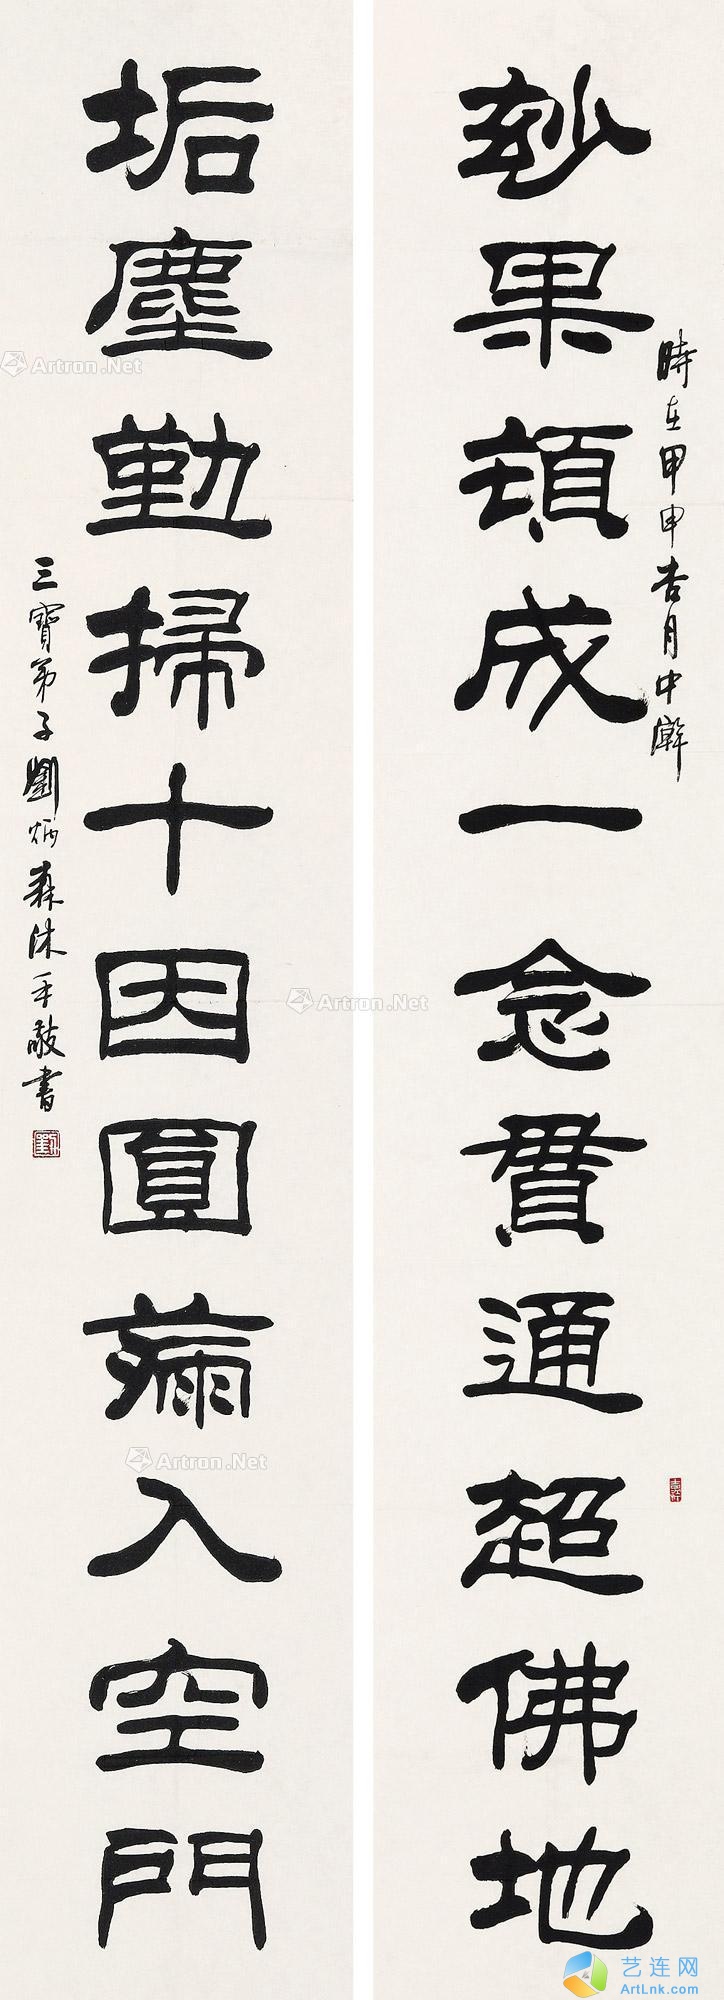 玅果頓成一念貫通超佛地
時在甲申杏月中澣
垢塵勤掃十因圓滿入空門
三寶弟子劉炳森沐手敬書
Artron.Net
Artron.Net
Artron.Net
艺连网
ArtLnk.com